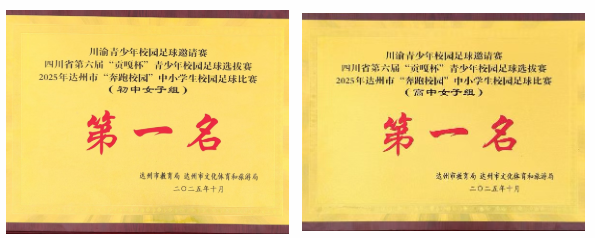 川渝青少年校园足球邀请赛
四川省第六届“贡嘎杯”青少年校园足球选拔赛
2025年达州市“奔跑校园”中小学生校园足球比赛
（初中女子组）
第一名
达州市教育局 达州市文化体育和旅游局
二〇二五年十月
川渝青少年校园足球邀请赛
四川省第六届“贡嘎杯”青少年校园足球选拔赛
2025年达州市“奔跑校园”中小学生校园足球比赛
（高中女子组）
第一名
达州市教育局 达州市文化体育和旅游局
二〇二五年十月